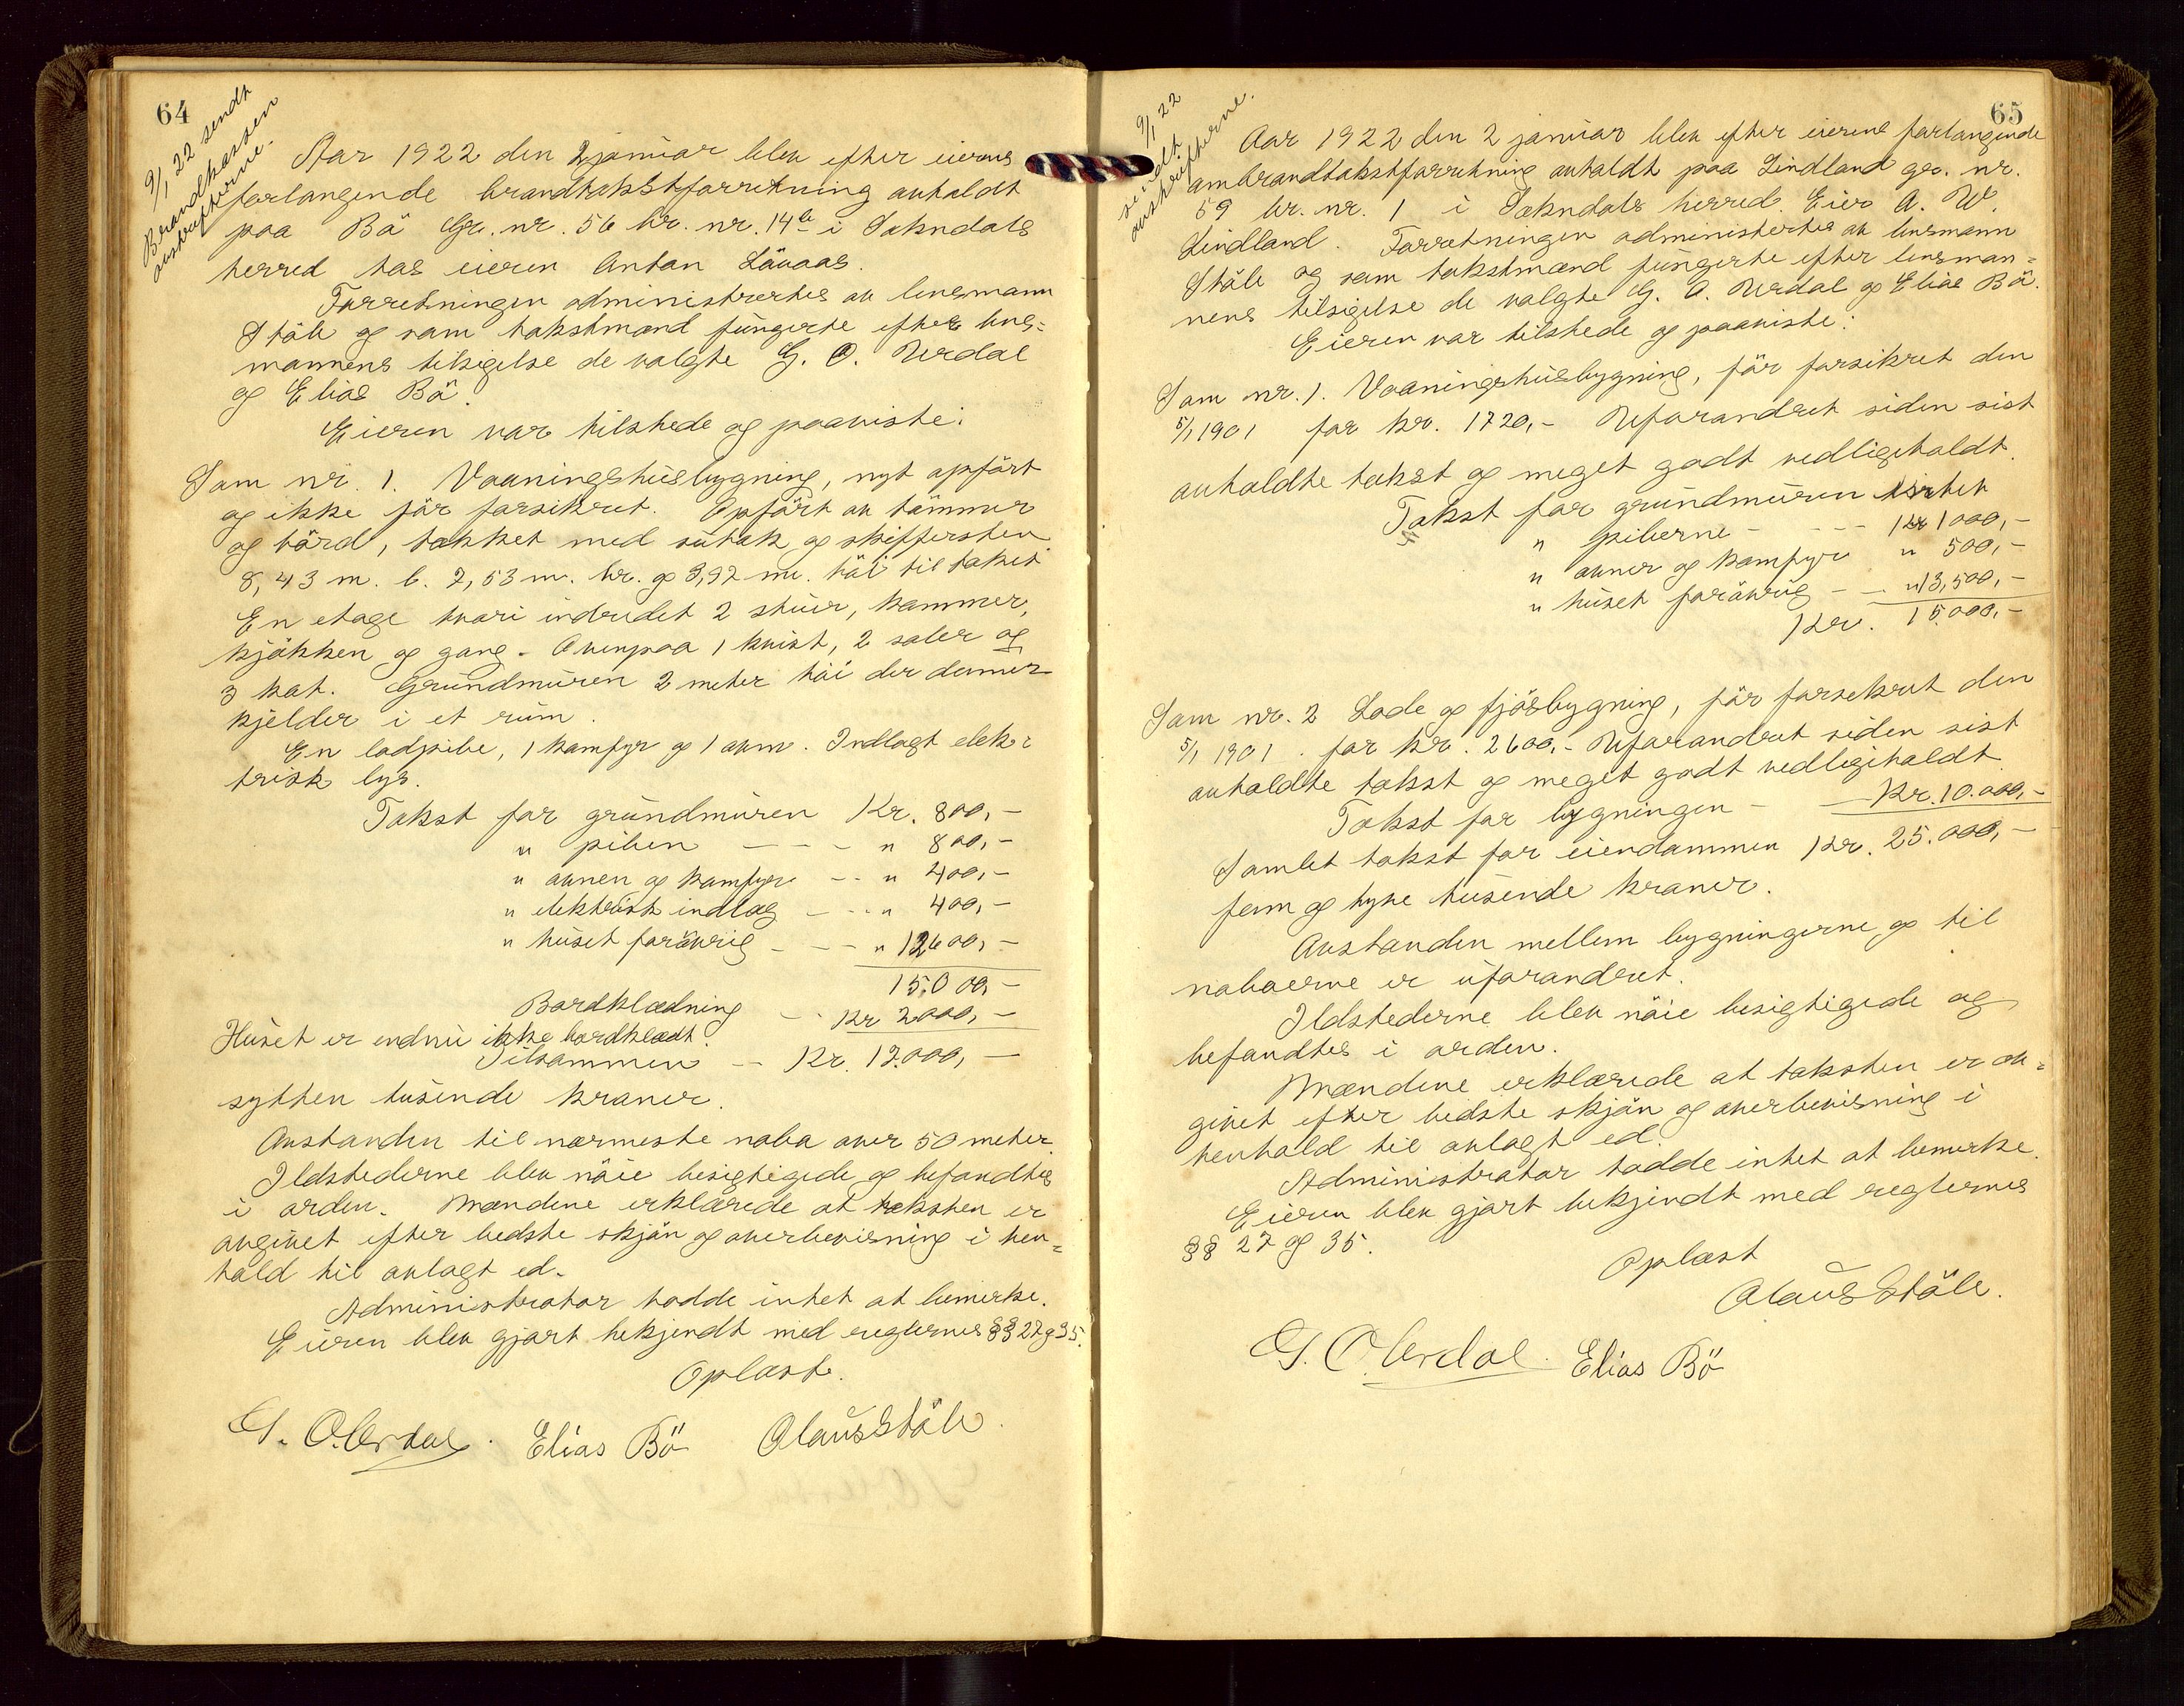 64
9/1 22 sendt
Brandkassen
avskrifterne.
Aar 1922 den 2 januar blev efter eierens
forlangende brandtakstforretning avholdt
paa Bö Gr. nr. 56 br. nr. 14 i Sokndals
herred hos eieren Anton Lövaas.
Forretningen administrertes av lensmann
Ståle og som takstmænd fungerte efter lens=
mannens tilsigelse de valgte G. O. Urdal
og Elias Bö.
Eieren var tilstede og paaviste:
Som nr. 1. Vaaningshusbygning, nyt opført
og ikke før forsikret. Opført av tømmer
og bord, tækket med sutak og skiffersten
8,43 m. l. 7,53 m. br. og 3,92 m. høi til taket
En etage hvori indredet 2 stuer, kammer,
kjøkken og gang. Ovenpaa 1 kvist, 2 saler og
3 kot. Grundmuren 2 meter høi der danner
kjelder i et rum.
En lodpibe, 1 komfyr og 1 ovn. Indlagt elek=
trisk lys.
Takst for grundmuren Kr. 800,-
" piben - - - " 800,-
" ovnen og komfyr - - " 400,-
" elektrisk indlæg - - - " 400,-
" huset forøvrig - - - " 12600,-
15.000,-
Bordklædning - - Kr 2000,-
Huset er endnu ikke bordklædt.
Tilsammen - Kr. 17.000,-
sytten tusende kroner.
Avstanden til nærmeste nabo over 50 meter.
Ildstederne blev nøie besigtigede og befandtes
i orden. Mændene erklærede at taksten er
avgivet efter bedste skjøn og overbevisning i hen=
hold til avlagt ed.
Administrator hadde intet at bemerke.
Eieren blev gjort bekjendt med reglernes §§ 27 og 35.
Oplæst.
G. O. Urdal. Elias Bö Olaus Ståle.
65
9/1 22
sendt
avskrifterne.
Aar 1922 den 2 januar blev efter eierens forlangende
ombrandtakstforretning avholdt paa Lindland gr. nr.
59 br. nr. 1 i Sokndals herred. Eier A. W.
Lindland. Forretningen administertes av lensmann
Ståle og som takstmænd fungerte efter lensman=
nens tilsigelse de valgte G. O. Urdal og Elias Bö.
Eieren var tilstede og paaviste:
Som nr. 1. Vaaningshusbygning, før forsikret den
5/1 1901 for kr. 1720,- Uforandret siden sist
avholdte takst og meget godt vedligeholdt.
Takst for grundmuren intet
" piberne - - - - Kr 1000,-
" ovner og komfyr " 500,-
" huset forøvrig - - " 13,500,-
Kr. 15.000,-
Som nr. 2 Lade og fjøsbygning, før forsekret den
5/1 1901. for kr. 2600,- Uforandret siden sist
avholdte takst og meget godt vedligeholdt
Takst for bygningen - Kr. 10.000,-
Samlet takst for eiendommen Kr. 25.000,-
fem og tyve tusende kroner.
Avstanden mellem bygningerne og til
naboerne er uforandret.
Ildstederne blev nøie besigtigede og
befandtes i orden.
Mændene erklærede at taksten er av=
givet efter bedste skjøn og overbevisning i
henhold til avlagt ed.
Administrator hadde intet at bemerke.
Eieren blev gjort bekjendt med reglernes
§§ 27 og 35.
Oplæst
Olaus Ståle.
G. O. Urdal. Elias Bö